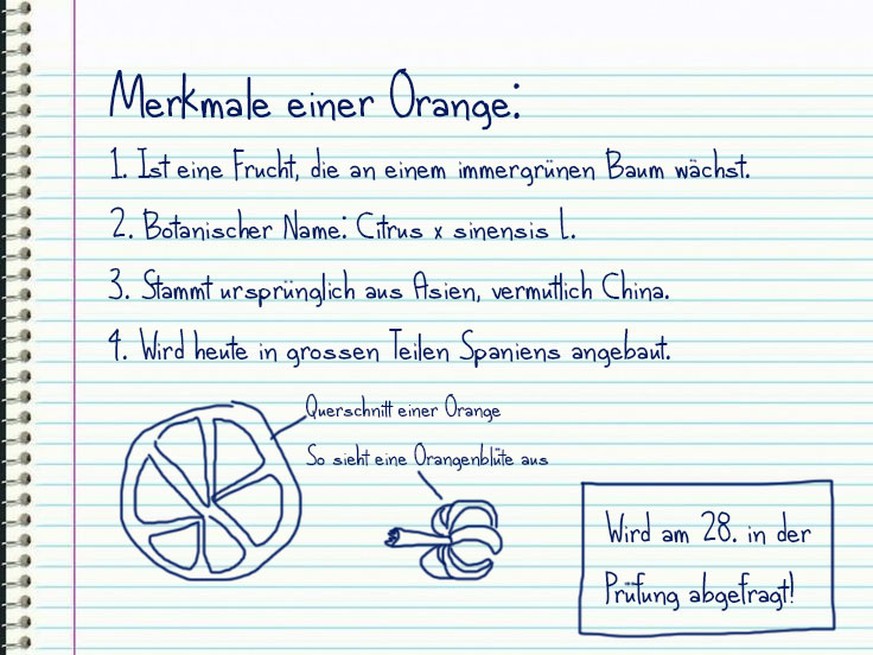 Merkmale einer Orange:
1. Ist eine Frucht, die an einem immergrünen Baum wächst.
2. Botanischer Name: Citrus x sinensis L.
3. Stammt ursprünglich aus Asien, vermutlich China.
4. Wird heute in grossen Teilen Spaniens angebaut.
Querschnitt einer Orange
So sieht eine Orangenblüte aus
Wird am 28. in der
Prüfung abgefragt!